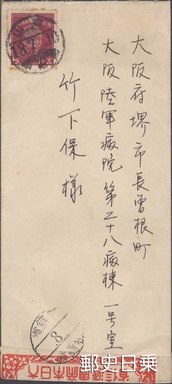 大阪府堺市長曽根町
大阪陸軍病院第二十八病棟一号室
竹下保様
郵史日乗